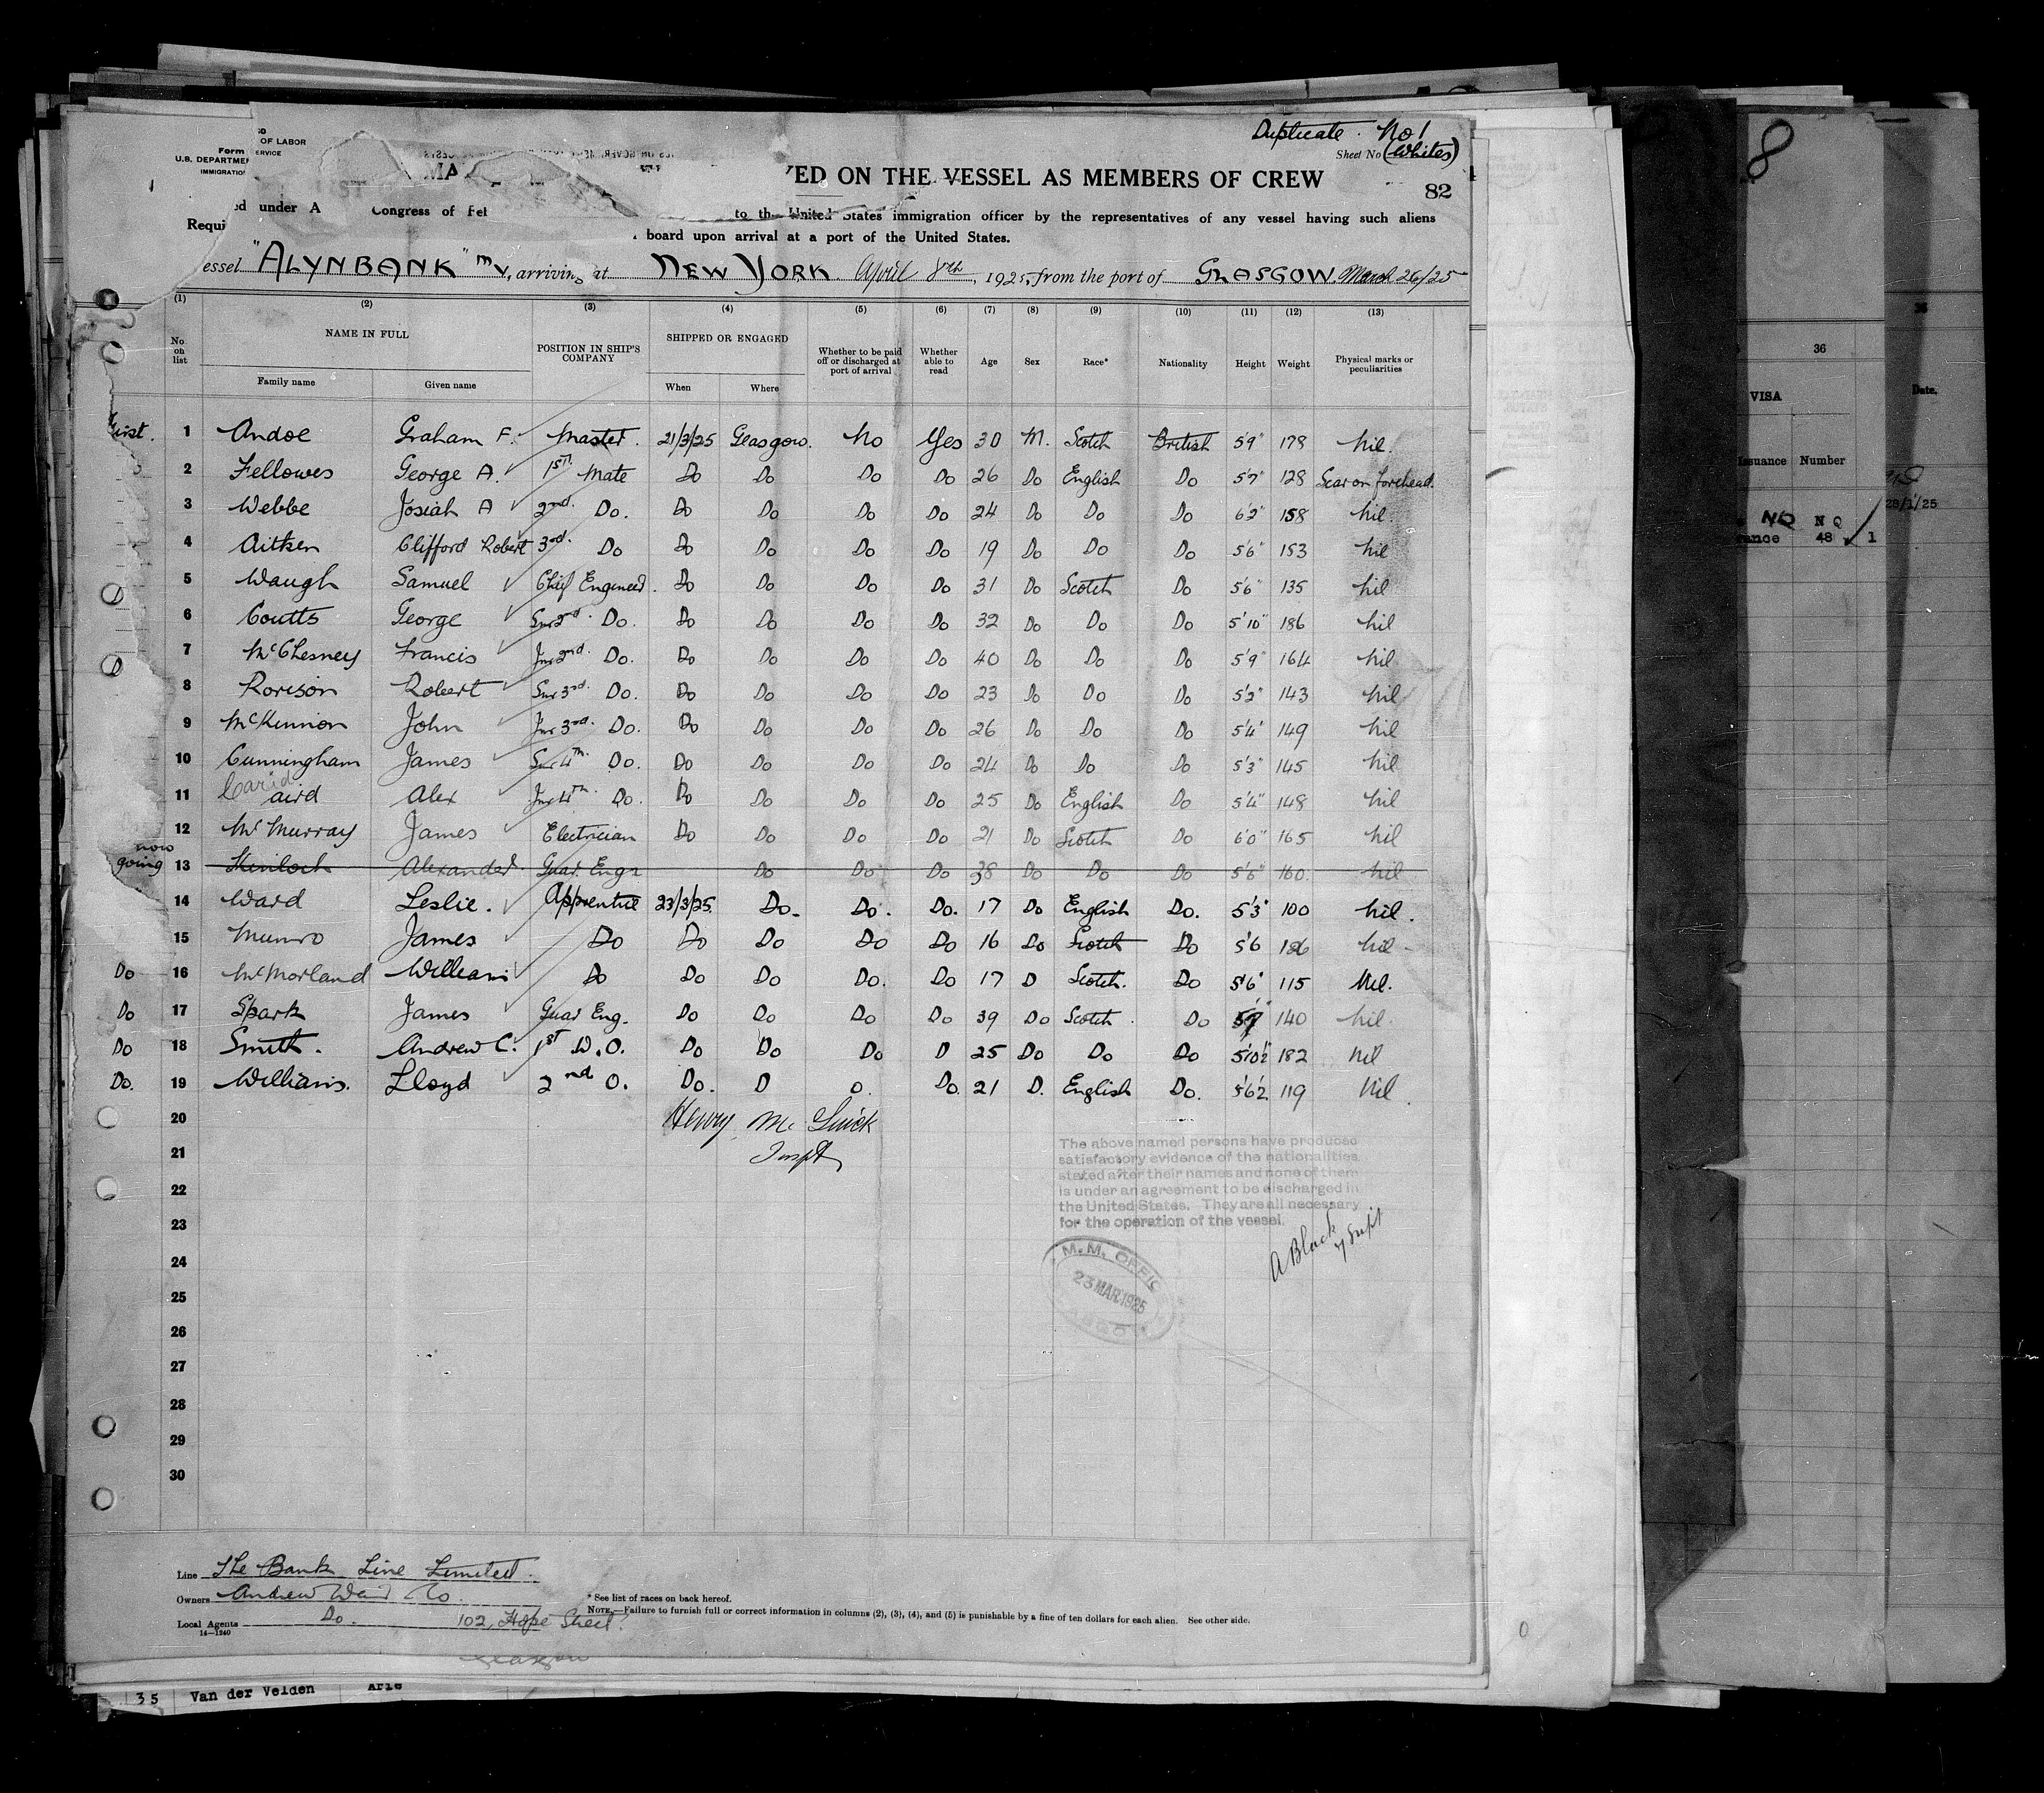 Duplicate. No 1
Form
OF LABOR
U.S. DEPARTMEN
SERVICE
IMMIGRATIO
Sheet No (Whites)
YED ON THE VESSEL AS MEMBERS OF CREW
82
Requi ed under A Congress of Fe to the United States immigration officer by the representatives of any vessel having such aliens
board upon arrival at a port of the United States.
essel "ALYNBANK" M.V., arriving at NEW YORK. April 8th, 1925, from the port of GLASGOW. March 26/25
(1) (2) (3) (4) (5) (6) (7) (8) (9) (10) (11) (12) (13)
No on list NAME IN FULL POSITION IN SHIP'S COMPANY SHIPPED OR ENGAGED Whether to be paid off or discharged at port of arrival Whether able to read Age Sex Race* Nationality Height Weight Physical marks or peculiarities
Family name Given name When Where
first. 1 Andoe Graham F. Master. 21/3/25 Glasgow. No Yes 30 M. Scotch British 5'9" 178 Nil.
2 Fellowes George A. 1st. Mate Do Do Do Do 26 Do English Do 5'7" 128 Scar on forehead.
3 Webbe Josiah A 2nd. Do. Do Do Do Do 24 Do Do Do 6'2" 158 Nil.
4 Aitken Clifford Robert 3rd. Do Do Do Do Do 19 Do Do Do 5'6" 153 Nil
5 Waugh Samuel Chief Engineer. Do Do Do Do 31 Do Scotch Do 5'6" 135 Nil
6 Coutts George Snr 2nd. Do. Do Do Do Do 32 Do Do Do 5'10" 186 Nil
7 McChesney Francis Jnr 2nd. Do. Do Do Do Do 40 Do Do Do 5'9" 164 Nil
8 Rorison Robert Snr 3rd. Do. Do Do Do Do 23 Do Do Do 5'2" 143 Nil
9 McKinnon John Jnr 3rd. Do. Do Do Do Do 26 Do Do Do 5'4" 149 Nil
10 Cunningham James Snr 4th. Do. Do Do Do Do 24 Do Do Do 5'3" 145 Nil
11 aird Alex Jnr 4th. Do. Do Do Do Do 25 Do English Do 5'4" 148 Nil
12 McMurray James Electrician Do Do Do Do 21 Do Scotch Do 6'0" 165 Nil
going 13 Kinloch Alexander. Guar. Engr Do Do Do 38 Do Do Do 5'6" 160. Nil
14 Ward Leslie. Apprentice 23/3/25. Do. Do. Do. 17 Do English Do. 5'3" 100 Nil.
15 Munro James Do Do Do Do Do 16 Do Scotch Do 5'6 126 Nil
Do 16 McMorland William Do Do Do Do. Do 17 D Scotch. Do 5'6" 115 Nil.
Do 17 Spark James Guar Eng. Do Do Do Do 39 Do Scotch. Do 5'7 140 Nil.
Do 18 Smith. Andrew C. 1st W.O. Do Do Do D 25 Do Do Do 5'10½ 182 Nil
Do. 19 Williams. Lloyd 2nd O. Do. D o. Do. 21 D. English Do. 5'6½ 119 Nil.
20
Henry Mc
21
Inspt
22
23
24
25
26
27
28
29
30
The above named persons have produced
satisfactory evidence of the nationalities
stated after their names and none of them
is under an agreement to be discharged in
the United States. They are all necessary
for the operation of the vessel.
A Black
Supt
M.M. OFFIC
23 MAR 1925
Line The Bank Line Limited.
Owners Andrew Weir Co.
Local Agents Do. 102, Hope Street.
Glasgow
14—1240
* See list of races on back hereof.
NOTE.—Failure to furnish full or correct information in columns (2), (3), (4), and (5) is punishable by a fine of ten dollars for each alien. See other side.
35 Van der Velden Arie
8
36
VISA
Date.
Issuance Number
28/1/25
NO NQ
rance 48 1